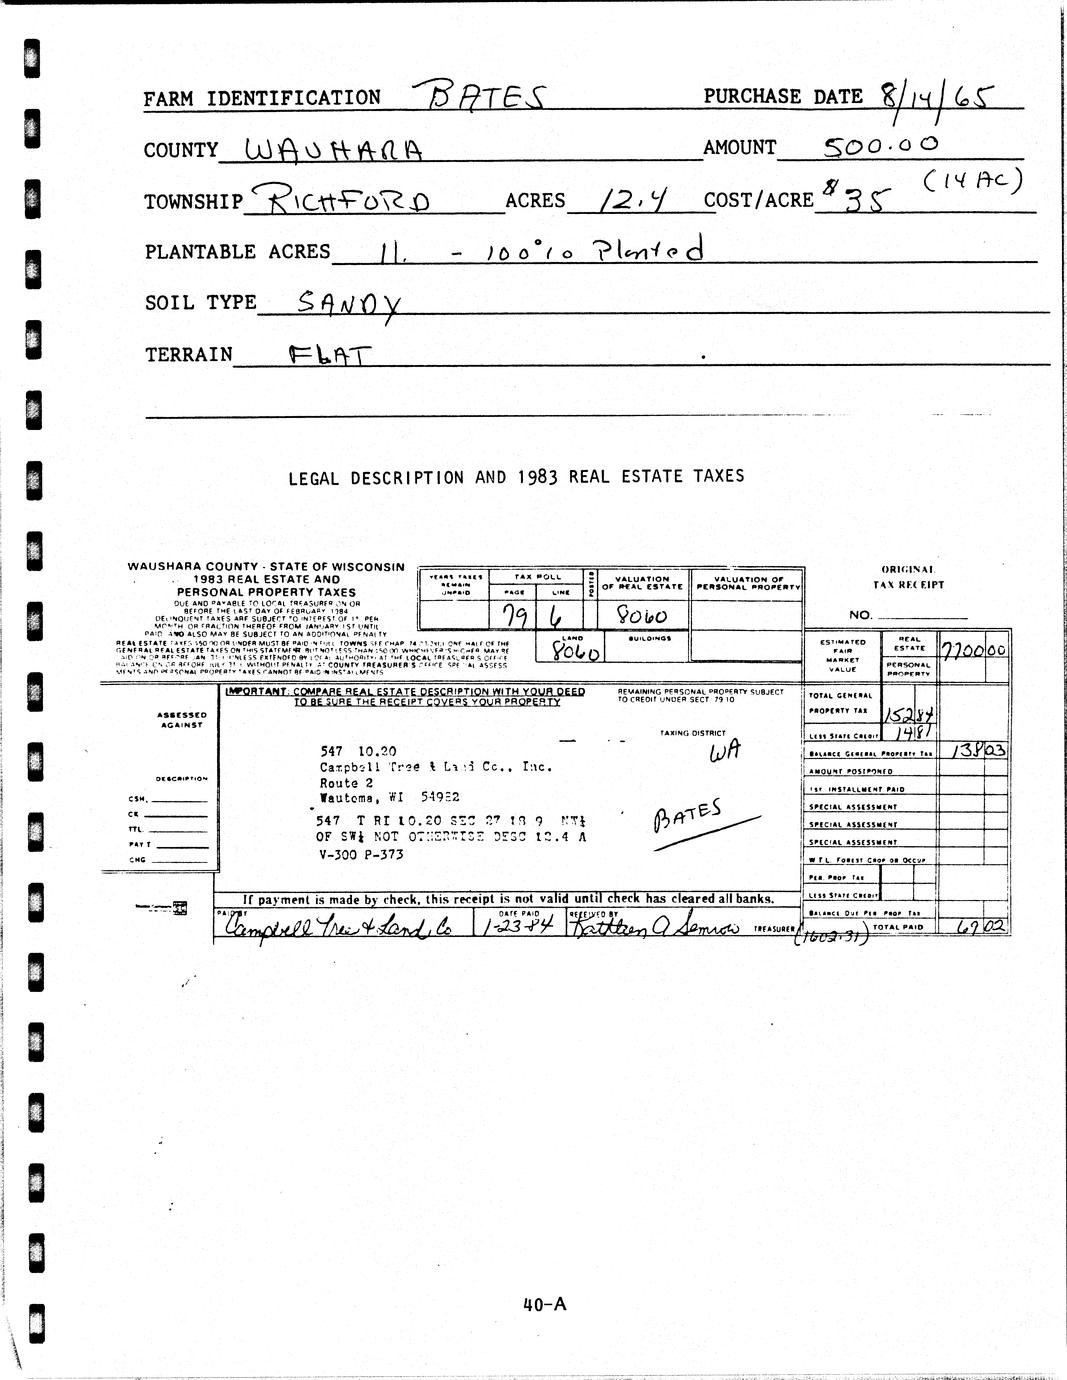 FARM IDENTIFICATION BATES PURCHASE DATE 8/14/65
COUNTY WAUHARA AMOUNT 500.00
TOWNSHIP RICHFORD ACRES 12.4 COST/ACRE $35 (14 AC)
PLANTABLE ACRES 11. - 100% Planted
SOIL TYPE SANDY
TERRAIN FLAT
LEGAL DESCRIPTION AND 1983 REAL ESTATE TAXES
WAUSHARA COUNTY - STATE OF WISCONSIN
1983 REAL ESTATE AND
PERSONAL PROPERTY TAXES
DUE AND PAYABLE TO LOCAL TREASURER ON OR
BEFORE THE LAST DAY OF FEBRUARY 1984
DELINQUENT TAXES ARE SUBJECT TO INTEREST OF 1% PER
MONTH OR FRACTION THEREOF FROM JANUARY 1ST UNTIL
PAID AND ALSO MAY BE SUBJECT TO AN ADDITIONAL PENALTY
YEARS TAXES REMAIN UNPAID
TAX ROLL
PAGE LINE
79 6
POSTED
VALUATION OF REAL ESTATE
8060
VALUATION OF PERSONAL PROPERTY
LAND
8060
BUILDINGS
ORIGINAL
TAX RECEIPT
NO.
ESTIMATED FAIR MARKET VALUE
REAL ESTATE
7700 00
PERSONAL PROPERTY
IMPORTANT: COMPARE REAL ESTATE DESCRIPTION WITH YOUR DEED
TO BE SURE THE RECEIPT COVERS YOUR PROPERTY
REMAINING PERSONAL PROPERTY SUBJECT
TO CREDIT UNDER SECT 79 10
TOTAL GENERAL
PROPERTY TAX 152 84
LESS STATE CREDIT 14 81
BALANCE GENERAL PROPERTY TAX 138 03
AMOUNT POSTPONED
1ST INSTALLMENT PAID
SPECIAL ASSESSMENT
SPECIAL ASSESSMENT
SPECIAL ASSESSMENT
W.T.L. FOREST CROP OR OCCUP
PER. PROP TAX
LESS STATE CREDIT
BALANCE DUE PER PROP TAX
TOTAL PAID 69 02
ASSESSED
AGAINST
TAXING DISTRICT
WA
547 10.20
Campbell Tree & Land Co., Inc.
Route 2
Wautoma, WI 54982
DESCRIPTION
CSH.
CK
TTL.
PAY T
CHG
BATES
547 T RI 10.20 SEC 27 18 9 NW¼
OF SW¼ NOT OTHERWISE DESC 12.4 A
V-300 P-373
If payment is made by check, this receipt is not valid until check has cleared all banks.
PAID BY Campbell Tree & Land Co
DATE PAID 1-23-84
RECEIVED BY Kathleen A Semrow TREASURER
(1602.31)
40-A